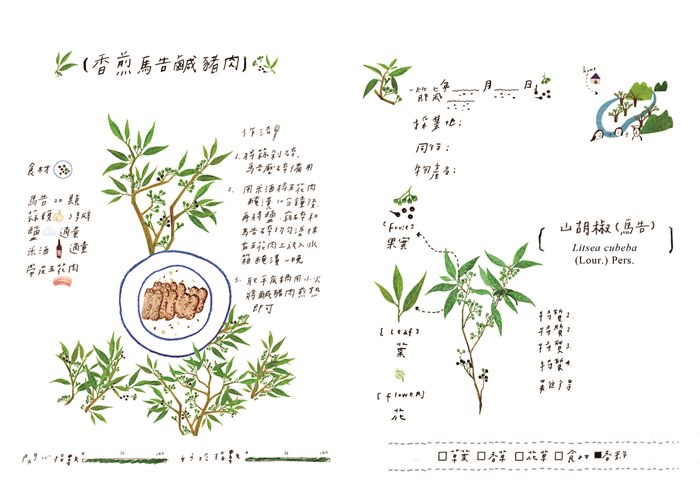 (香煎馬告鹹豬肉)
食材
馬告 20 顆
蒜頭 3 瓣
鹽 適量
米酒 適量
帶皮五花肉
作法
1. 將蒜剁碎,
馬告壓碎備用
2. 用米酒將五花肉
醃漬10分鐘後,
再將鹽、蒜碎和
馬告碎均勻塗抹
在五花肉上放入冰
箱醃漬一晚
3. 取平底鍋用小火
將鹹豬肉煎熟
即可
指數
指數
節氣 年 月 日
採集地:
同行:
物產:
home
[fruit]
果實
[leaf]
葉
[flower]
花
山胡椒(馬告)
Litsea cubeba
(Lour.) Pers.
特質1.
特質2.
特質3.
特質4.
□香草 □花草 □食材 ■香料